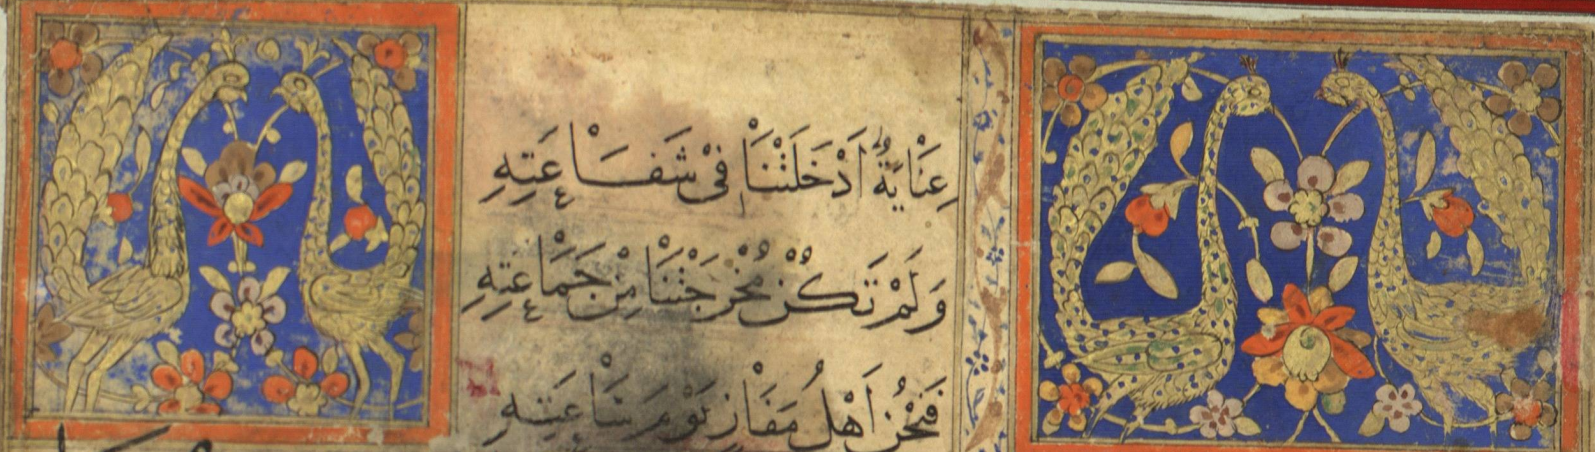 عِنَايَةٌ اَدْخَلَتْنَا فِىْ شَفَاعَتِهِ
وَلَمْ تَكُنْ مُخْرِجَتْنَا مِنْ جَمَاعَتِهِ
فَنَحْنُ اَهْلُ مَفَازٍ يَوْمَ سَاعَتِهِ